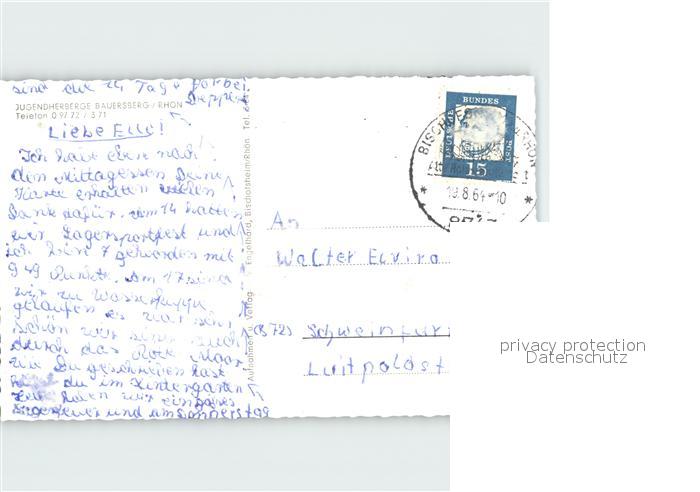 sind die 14 Tage vorbei
JUGENDHERBERGE BAUERSBERG/RHÖN
Telefon 0 97 72 / 3 71
Liebe Elli!
Ich habe eben nach
dem Mittagessen Deine
Karte erhalten vielen
Dank dafür. am 14 hatten
wir Lagersportfest und
ich bin 7 geworden mit
949 Punkte. Am 17 sind
wir zu Wasserkuppe
gelaufen es war sehr
schön wir sind auch
durch das Rote Moor
wie Du geschrieben hast
du im Kindergarten
haben wir ein
Lagerfeuer und am Donnerstag
Aufnahmen u. Verlag Engelhard, Bischofsheim/Rhön Tel.
DEUTSCHE BUNDES POST
15
BISCH RHÖN
19.8.64-10
An
Walter
(872) Schweinfur
Luitpoldst
privacy protection
Datenschutz